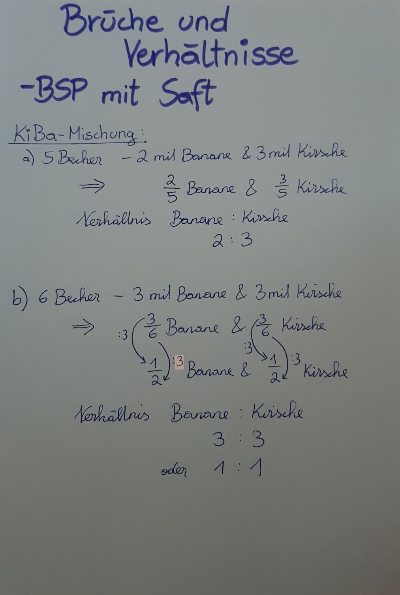 Brüche und
Verhältnisse
-BSP mit Saft
KiBa-Mischung:
a) 5 Becher - 2 mit Banane & 3 mit Kirsche
⇒ 2/5 Banane & 3/5 Kirsche
Verhältnis Banane : Kirsche
2 : 3
b) 6 Becher - 3 mit Banane & 3 mit Kirsche
⇒ 3/6 Banane & 3/6 Kirsche
:3 :3 :3 :3
1/2 Banane & 1/2 Kirsche
Verhältnis Banane : Kirsche
3 : 3
oder 1 : 1